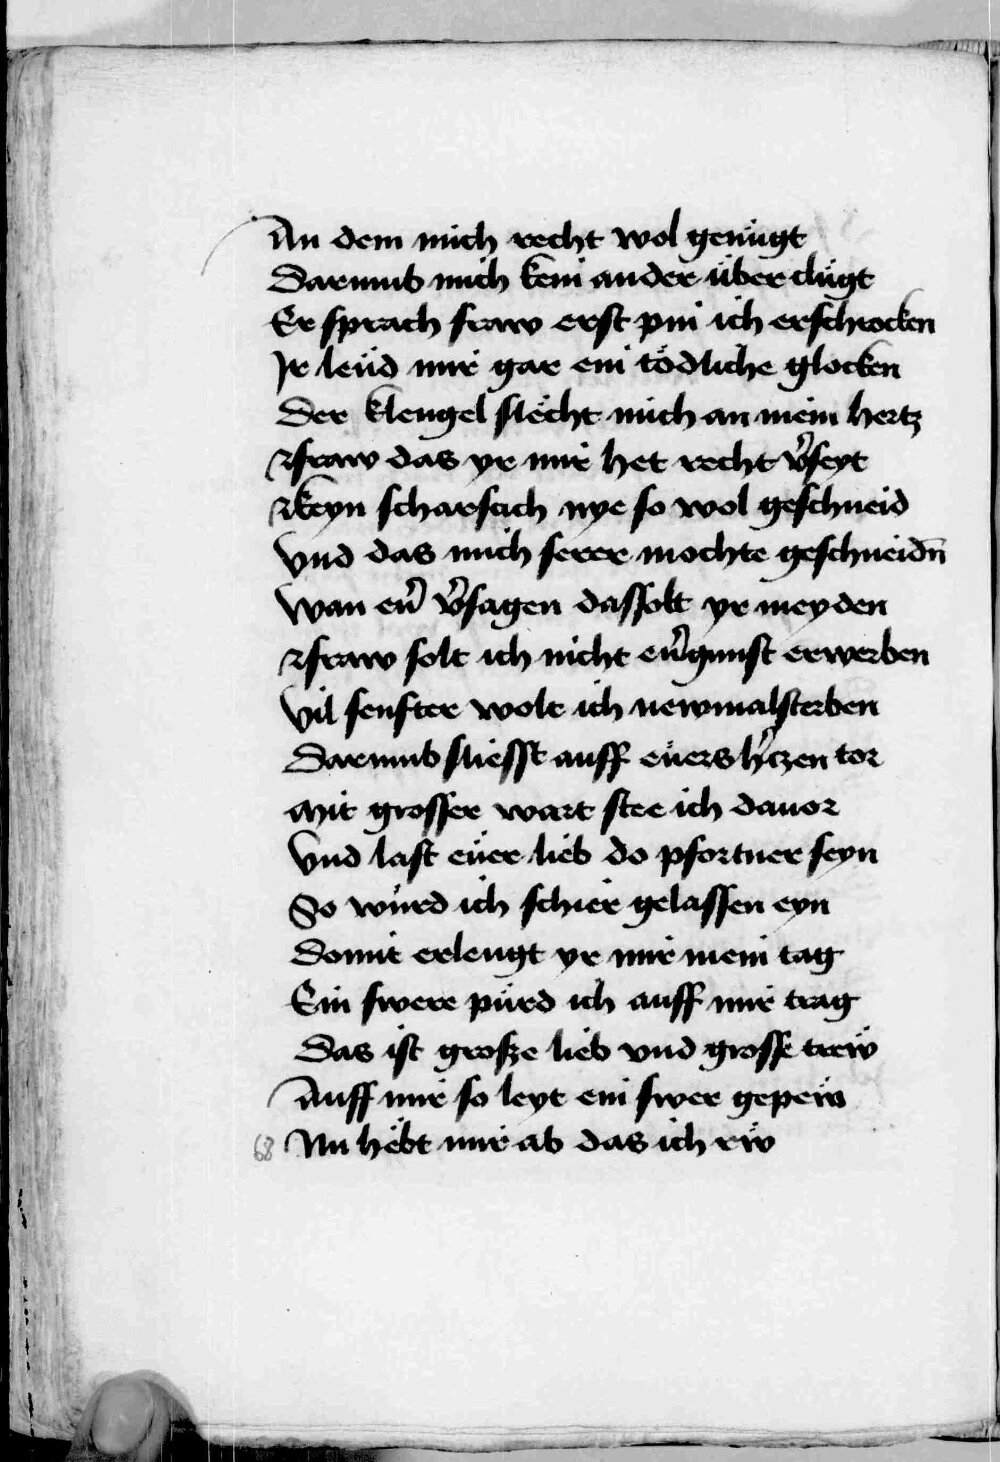 An dem mich recht wol genügt
Darumb mich kein ander über clügt
Er sprach fraw erst pin ich erschrocken
Ir leüd mir gar ein tödliche glocken
Der klengel slecht mich an mein hertz
Fraw das yr mir het recht v̓seyt
Keyn scharsach nye so wol geschneid
Vnd das mich serer mochte geschneidn̄
Wan eu̓ v̓sagen das solt yr meyden
Fraw solt ich nicht eu̓ gunst erwerben
Vil senfter wolt ich newmal sterben
Darumb sliesst auff eüers h̓tzen tor
Mit grosser wart stee ich dauor
Vnd last eüer lieb do pfortner seyn
So würd ich schier gelassen eyn
Domit erlengt yr mir mein tag
Ein swere pürd ich auff mir trag
Das ist große lieb vnd grosse trew̎
Auff mir so leyt ein swer gepew̎
68 Nu hebt mir ab das ich rw̎